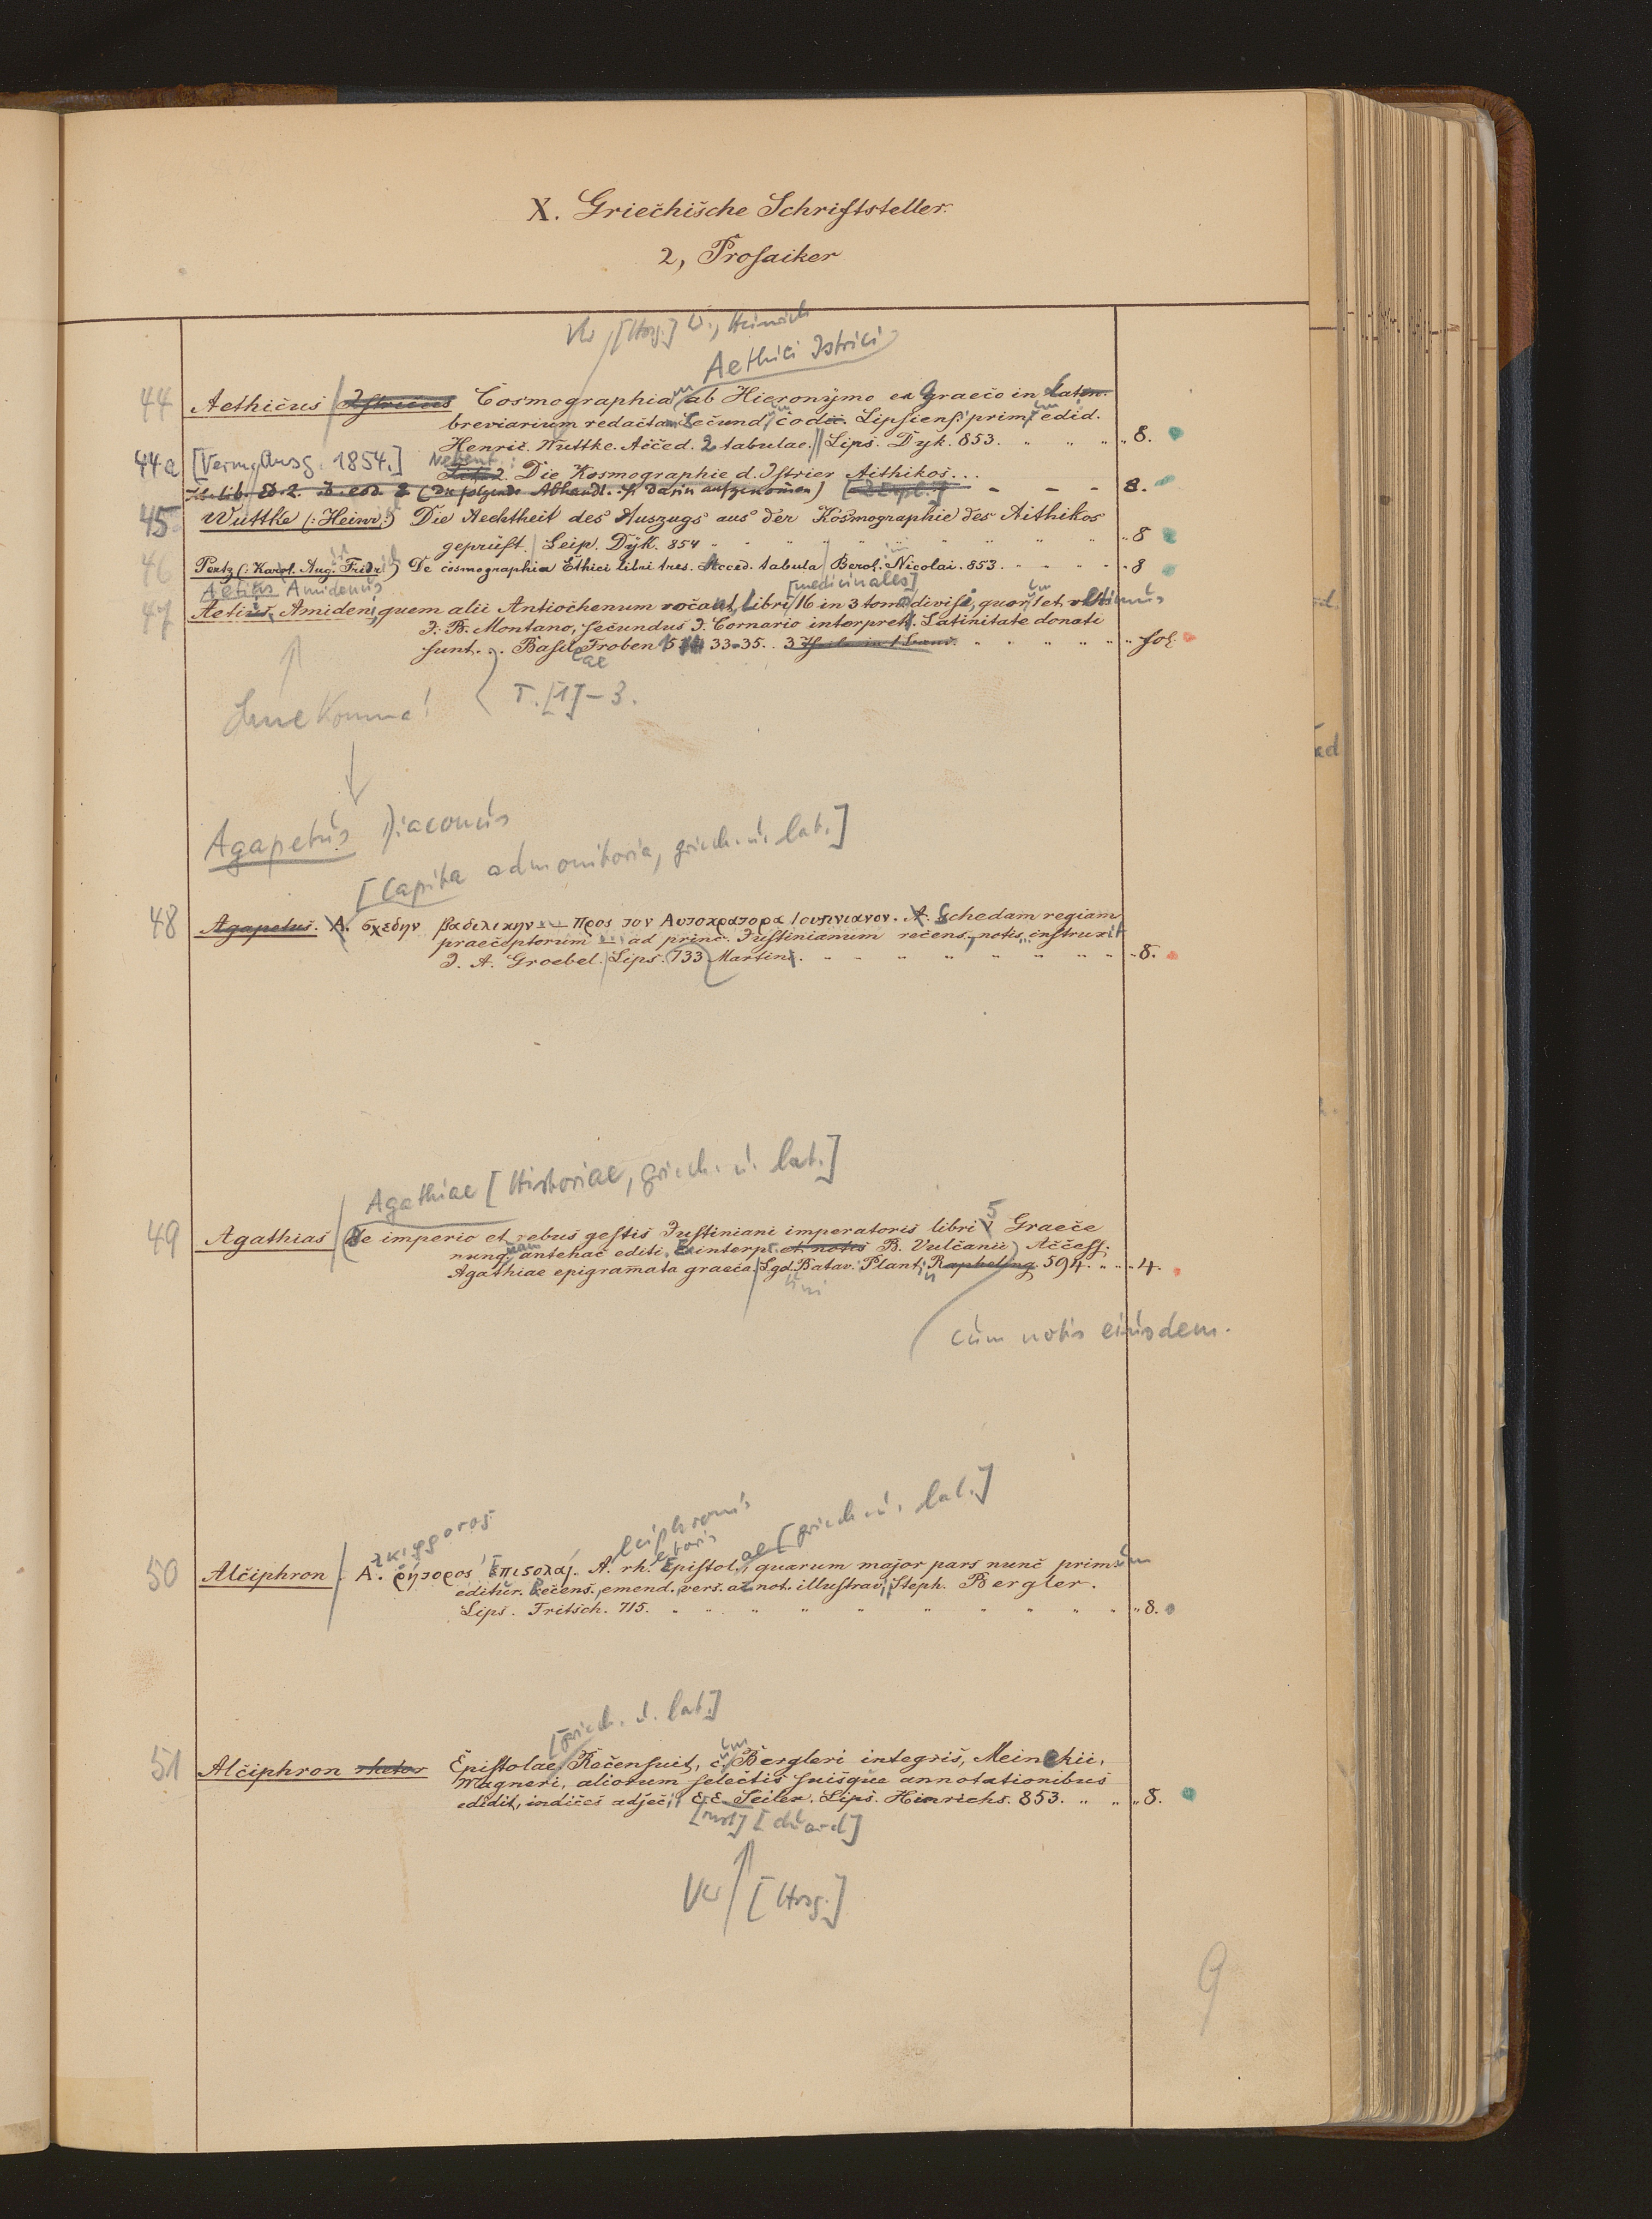 X. Griechische Schriftsteller.
2, Prosaiker
Vw / [Hrsg.] W., Heinrich
Aethici Istrici
44 Aethicus Istricus Cosmographiam ab Hieronymo ex Graeco in Latin.
breviarium redactam secundum codic. Lipsiens. primum edid.
Henric. Wuttke. Acced. 2 tabulae. Lips. Dyk. 853. 8.
44a [Verm. Ausg. 1854.] Nebent.:
Tit. 2. Die Kosmographie d. Istrier Aithikos...
It. lib. Ed. 2. ib. eod. (Die folgende Abhandl. ist darin aufgenommen) [2 Expl.] 8.
45 Wuttke (: Heinr :) Die Aechtheit des Auszugs aus der Kosmographie des Aithikos
geprüft. Leip. Dyk. 854 8
46 Pertz (: Karol. Aug. Fridr :) De cosmographia Ethici libri tres. Acced. tabula Berol. Nicolai. 853. 8
Aetius Amidenus [medicinales]
47 Aetius, Amideni, quem alii Antiochenum vocant, libri 16 in 3 tomos divisi, quorum 1 et ultimus
J. B. Montano, secundus J. Cornario interpret. Latinitate donati
sunt. Basileae Froben 1533-35. 3 Theile in 1 Band. fol.
T. [1]-3.
Ohne Komma!
Agapetus Diaconus
[Capita admonitoria, griech. u. lat.]
48 Agapetus. A. σχεδην βασιλικην ... προς τον Αυτοκρατορα Ιουστινιανον. A. Schedam regiam
praeceptorum ... ad princ. Justinianum recens., notis instruxit
J. A. Groebel. Lips. 733 Martini. 8.
Agathiae [Historiae, griech. u. lat.]
49 Agathias De imperio et rebus gestis Justiniani imperatoris libri 5 Graece
nunquam antehac editi. Ex interpr. et notis B. Vulcanii. Access.
Agathiae epigrammata graeca. Lgd. Batav. Plantin Rapheling. 594. 4.
tini
cum notis eiusdem.
λκιφρονος lciphronis etoris ae [griech. u. lat.]
50 Alciphron. A. ῥήτορος Επιστολαί. A. rh. Epistol., quarum major pars nunc primum
editur. Recens., emend., vers. ac not. illustravit Steph. Bergler.
Lips. Fritsch. 715. 8.
[griech. u. lat.]
51 Alciphron rhetor Epistolae Recensuit, cum Bergleri integris, Meinekii,
Wagneri, aliorum selectis suisque annotationibus
edidit, indices adjecit E. E. Seiler. Lips. Hinrichs. 853. 8.
[rnst] [duard]
Vw / [Hrsg.]
9